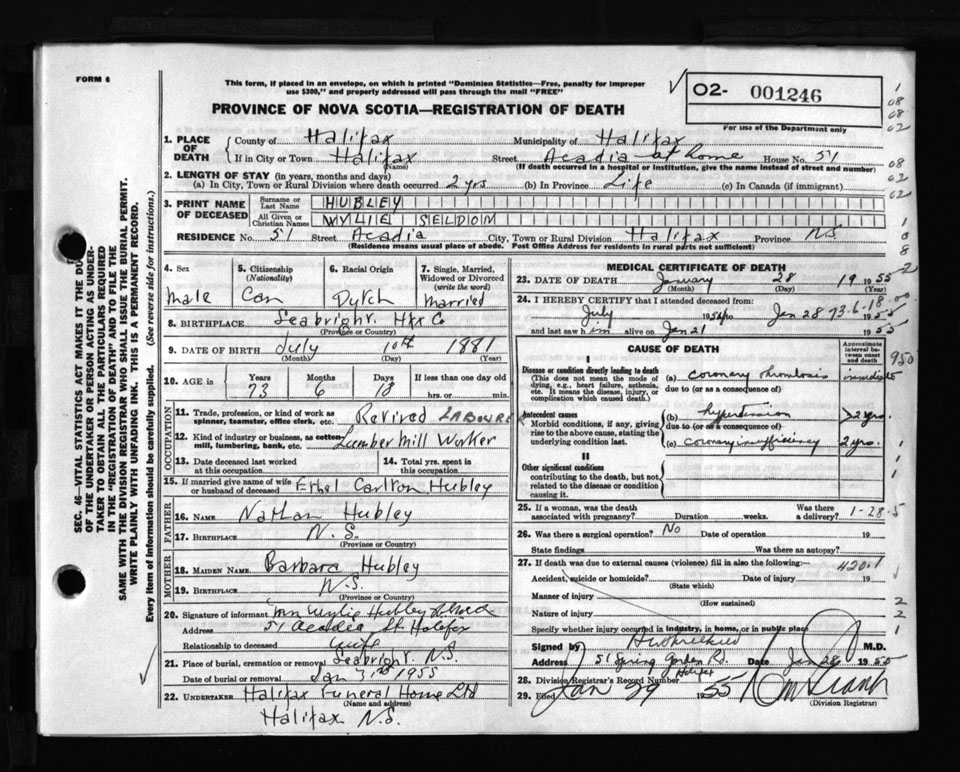 FORM 6
This form, if placed in an envelope, on which is printed "Dominion Statistics—Free, penalty for improper
use $300," and properly addressed will pass through the mail "FREE"
PROVINCE OF NOVA SCOTIA—REGISTRATION OF DEATH
02- 001246
For use of the Department only
1. PLACE OF DEATH
County of Halifax Municipality of Halifax
If in City or Town Halifax (Name) Street Acadia at home House No. 51
(If death occurred in a hospital or institution, give the name instead of street and number)
2. LENGTH OF STAY (in years, months and days)
(a) In City, Town or Rural Division where death occurred 2 yrs (b) In Province Life (c) In Canada (if immigrant)
3. PRINT NAME OF DECEASED
Surname or Last Name HUBLEY
All Given or Christian Names WYLIE SELDOM
RESIDENCE No. 51 Street Acadia City, Town or Rural Division Halifax Province N.S.
(Residence means usual place of abode. Post Office Address for residents in rural parts not sufficient)
4. Sex male
5. Citizenship (Nationality) Can
6. Racial Origin Dutch
7. Single, Married, Widowed or Divorced (write the word) Married
8. BIRTHPLACE Seabright. Hfx Co
(Province or Country)
9. DATE OF BIRTH July (Month) 10th (Day) 1881 (Year)
10. AGE in Years 73 Months 6 Days 18 If less than one day old hrs. or min.
OCCUPATION
11. Trade, profession, or kind of work as spinner, teamster, office clerk, etc. Retired LABOURER
12. Kind of industry or business, as cotton mill, lumbering, bank, etc. Lumber Mill Worker
13. Date deceased last worked at this occupation
14. Total yrs. spent in this occupation
15. If married give name of wife or husband of deceased Ethel Carlton Hubley
FATHER
16. NAME Nathan Hubley
17. BIRTHPLACE N.S.
(Province or Country)
MOTHER
18. MAIDEN NAME Barbara Hubley
19. BIRTHPLACE N.S.
(Province or Country)
20. Signature of informant Mrs Wylie Hubley
Address 51 Acadia St Halifax
Relationship to deceased wife
21. Place of burial, cremation or removal Seabright N.S.
Date of burial or removal Jan 31st 1955
22. UNDERTAKER Halifax Funeral Home Ltd
(Name and address)
Halifax N.S.
MEDICAL CERTIFICATE OF DEATH
23. DATE OF DEATH January (Month) 28 (Day) 1955 (Year)
24. I HEREBY CERTIFY that I attended deceased from
July 1954 to Jan 28 1955
73-6-18-00
and last saw him alive on Jan 21 1955
CAUSE OF DEATH
Approximate interval between onset and death
950
I
Disease or condition directly leading to death
(This does not mean the mode of dying, e.g., heart failure, asthenia, etc. It means the disease, injury, or complication which caused death.)
(a) coronary thrombosis immediate
due to (or as a consequence of)
Antecedent causes
Morbid conditions, if any, giving rise to the above cause, stating the underlying condition last.
(b) hypertension >2 yrs.
due to (or as a consequence of)
(c) coronary insufficiency 2 yrs.
II
Other significant conditions contributing to the death, but not related to the disease or condition causing it.
25. If a woman, was the death associated with pregnancy? Duration weeks. Was there a delivery?
1-28-5
26. Was there a surgical operation? No Date of operation 19
State findings Was there an autopsy?
27. If death was due to external causes (violence) fill in also the following:—
420.1
Accident, suicide or homicide? (State which) Date of injury 19
Manner of injury
(How sustained)
Nature of injury
Specify whether injury occurred in industry, in home, or in public place
Signed by M.D.
Address 51 Spring Garden Rd. Halifax Date Jan 28 1955
28. Division Registrar's Record Number
29. Filed Jan 29 1955
(Division Registrar)
SEC. 46—VITAL STATISTICS ACT MAKES IT THE DUTY
OF THE UNDERTAKER OR PERSON ACTING AS UNDER-
TAKER TO OBTAIN ALL THE PARTICULARS REQUIRED
IN THE "REGISTRATION OF DEATH" AND TO FILE THE
SAME WITH THE DIVISION REGISTRAR WHO SHALL ISSUE THE BURIAL PERMIT.
WRITE PLAINLY WITH UNFADING INK. THIS IS A PERMANENT RECORD.
Every item of information should be carefully supplied. (See reverse side for instructions.)
1
08
08
02
08
02
02
1
0
8
2
1
1
1
2
2
1